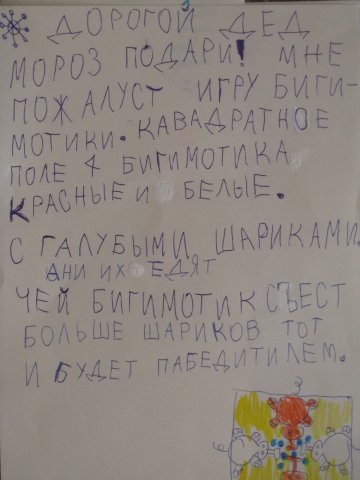 ДОРОГОЙ ДЕД
МОРОЗ ПОДАРИ! МНЕ
ПОЖАЛУСТ ИГРУ БИГИ-
МОТИКИ. КАВАДРАТНОЕ
ПОЛЕ 4 БИГИМОТИКА,
КРАСНЫЕ И БЕЛЫЕ.
С ГАЛУБЫМИ ШАРИКАМИ.
АНИ ИХ ЕДЯТ
ЧЕЙ БИГИМОТИК СЪЕСТ
БОЛЬШЕ ШАРИКОВ ТОТ
И БУДЕТ ПАБЕДИТИЛЕМ.